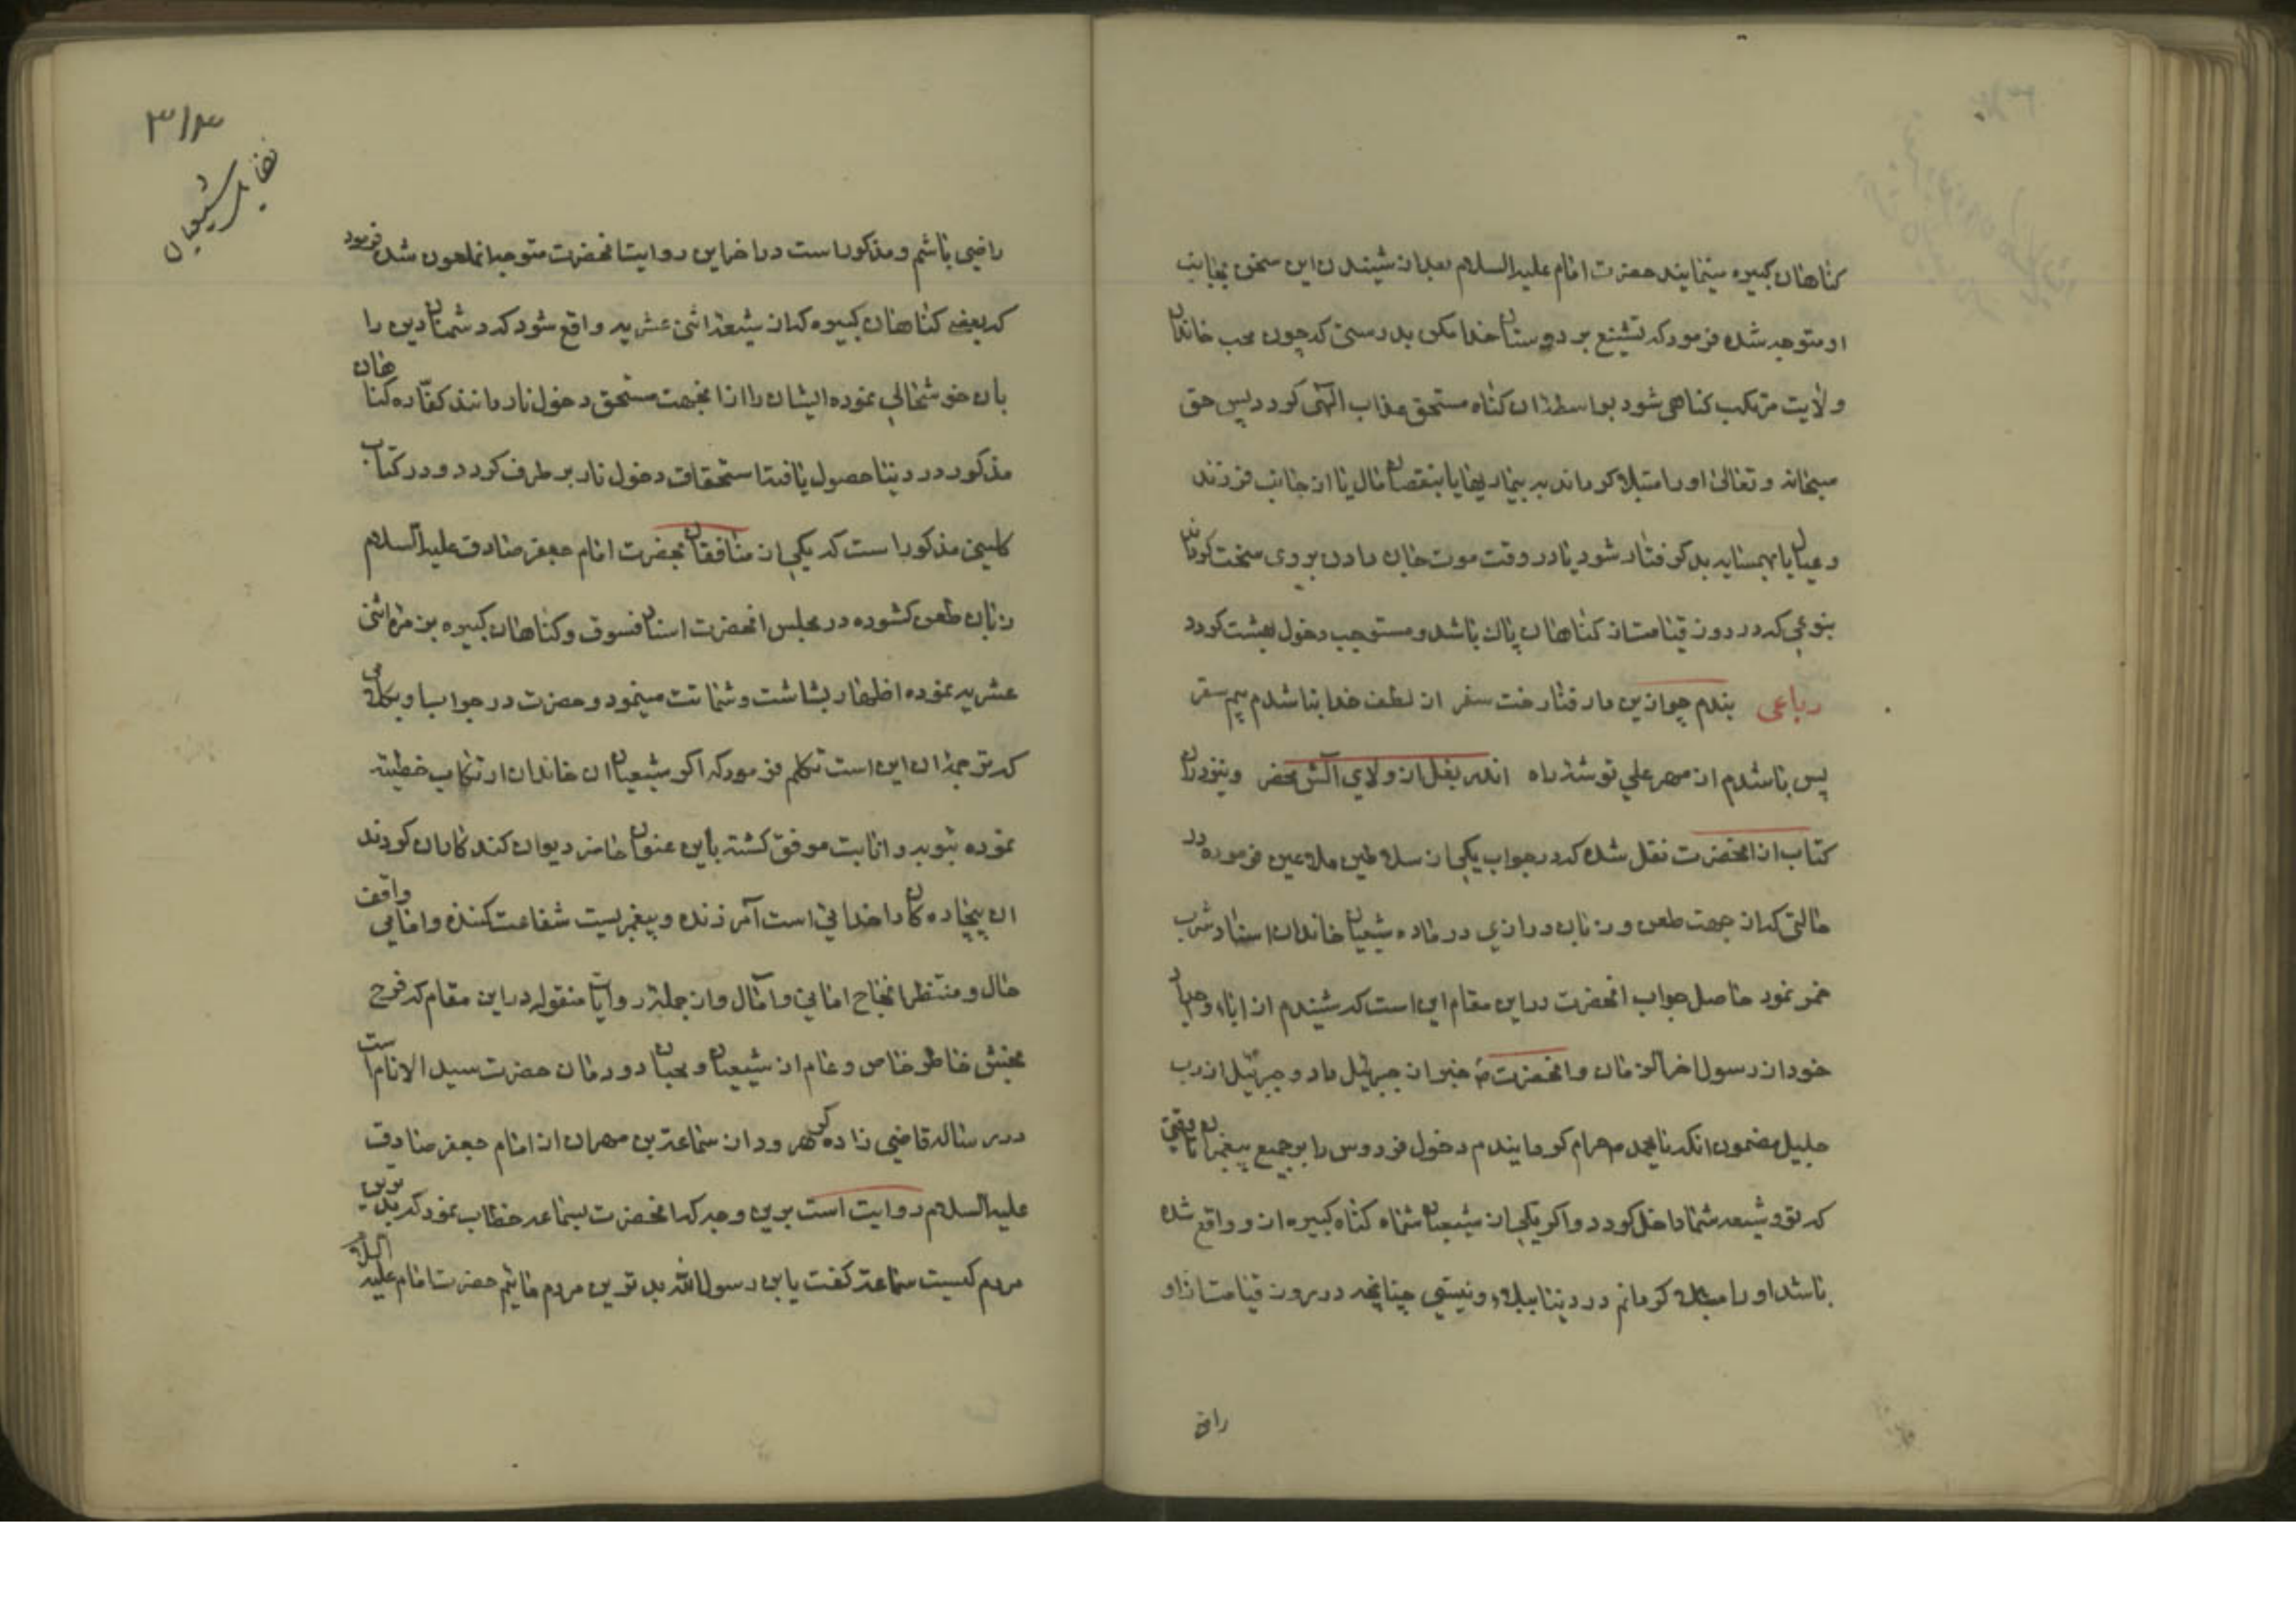 کناهان کبیره مینمایند حضرت امام علیه السلام بعد از شنیدن این سخن بجانب
او متوجه شده فرمود که تشنیع بر دوستان خدا مکن بدرستی که چون محب خاندان
ولایت مرتکب کناهی شود بواسطه ان کناه مستحق عذاب الهی کردد پس حق
سبحانه و تعالی او را مبتلا کرداند به بیماریها یا بنقصان مال یا از جانب فرزند
و عیال یا بهمسایه بد کرفتار شود یا در وقت موت جان دادن بروی سخت کردان
بنوعی که در روز قیامت از کناهان پاک باشد و مستوجب دخول بهشت کردد
رباعی بندم چو ازین دار فنا رخت سفر از لطف خدا بنا شدم بیم سقر
بس باشدم از مهر علی توشه راه اندر بغل از ولای الش محضر و نیز در ان
کتاب از انحضرت نقل شده که در جواب یکی از سلاطین ملاعین فرموده در
حالتی که از جهت طعن و زبان درازی در ماده شیعیان خاندان اسناد شرب
خمر نمود حاصل جواب انحضرت در این مقام این است که شنیدم از اباء و جدان
خود از رسول اخر الزمان و انحضرت خبر از جبرئیل داد و جبرئیل از رب
جلیل مضمون انکه یا محمد حرام کردانیدم دخول فردوس را بر جمیع پیغمبران تا وقتی
که تو و شیعه شما داخل کردد و اکر یکی از شیعیان شما کناه کبیره از و واقع شده
باشد او را مبتلا کردانم در دنیا ببلا و نیستی چنانچه در روز قیامت از او
راضی
۳۱۳
فضایل شیعیان
راضی باشم و مذکور است در اخر این روایت انحضرت متوجه انملعون شده فرمود
که بعضی کناهان کبیره که از شیعه اثنی عشریه واقع شود که دشمنان دین را
بان خوشحالی نموده ایشان را از انجهت مستحق دخول نار دانند کفّاره کناهان
مذکور در دنیا حصول یافته استحقاق دخول نار بر طرف کردد و در کتاب
کلینی مذکور است که یکی از منافقان بحضرت امام جعفر صادق علیه السلام
زبان طعن کشوده در مجلس انحضرت اسناد فسوق و کناهان کبیره بزمره اثنی
عشریه نموده اظهار بشاشت و شماتت مینمود و حضرت در جواب او بکلامی
که ترجمه ان این است تکلم فرمود که اکر شیعیان ان خاندان ارتکاب خطیئه
نموده بتوبه و انابت موفق کشته باین عنوان حاضر دیوان کنه کاران کردند
ان بیچاره کان را خدائی است آمرزنده و پیغمبریست شفاعت کننده و امامی واقف
حال و منتظر انجاح امانی و آمال و از جمله روایات منقوله در این مقام که فرح
بخش خاطر خاص و عام از شیعیان و محبان دودمان حضرت سید الانام است
در رساله قاضی زاده کرهرود از سماعة بن مهران از امام جعفر صادق
علیه السلام روایت است برین وجه که انحضرت بسماعه خطاب نمود که بدترین
مردم کیست سماعة کفت یابن رسول الله بدترین مردم مائیم حضرت امام علیه السلام